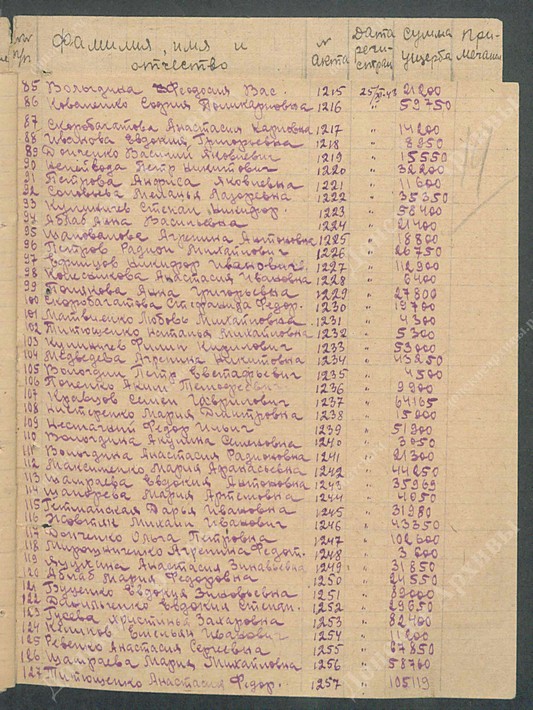 №№ п/п фамилия, имя и отчество № акта Дата реги-страц сумма ущерба При-мечание
85 Вологдина Феодосия Вас. 1215 21200
86 Коваленко София Поликарповна 1216 " 59750
87 Скоробагатова Анастасия Карповна 1217 " 14200
88 Иванова Евдокия Григорьевна 1218 " 8850
89 Донченко Василий Яковлевич 1219 " 15550
90 Петр Никитович 1220 " 32200
91 Петрова Анфиса Яковлевна 1221 " 11600
92 Соловьева Меланья Лазаревна 1222 " 35350
93 Степан 1223 " 58400
94 Аблаб Анна Васильевна 1224 " 21400
95 Шаповалова Агрепина Антоновна 1225 " 18800
96 Петров Радион Михайлович 1226 " 26750
97 Никифор Иванович 1227 " 112900
98 Колесникова Анастасия Ивановна 1228 " 6400
99 Полякова Анна Григорьевна 1229 " 27800
100 Скоробагатова Стефанида Федор. 1230 " 19700
101 Матвиенко Любовь Михайловна 1231 " 4300
102 Титющенко Наталья Михайловна 1232 " 5300
103 Филипп Кирилович 1233 " 53000
104 Медведева Агрепина Никитовна 1234 " 43250
105 Вологдин Петр Евстафьевич 1235 " 4500
106 Аким 1236 " 9900
107 Кравцов Семен Гаврилович 1237 " 64165
108 Нестеренко Мария Дмитровна 1238 " 15000
109 Федор Ильич 1239 " 51900
110 Вологдина Акулина Семеновна 1240 " 3050
111 Вологдина Анастасия Радионовна 1241 " 21300
112 Максименко Мария Афанасьевна 1242 " 44250
113 Шатраева Евдокия Антоновна 1243 " 35969
114 Мария Артемовна 1244 " 4050
115 Гетманская Дарья Ивановна 1245 " 31980
116 Жовтяк Михаил Иванович 1246 " 43350
117 Донченко Ольга Петровна 1247 " 102600
118 Мирошниченко Агрепина Федот. 1248 " 3600
119 Анастасия Зинавьевна 1249 " 31850
120 Аблаб Мария Федоровна 1250 " 24550
121 Буценко Евдокия Зиновьевна 1251 " 89000
122 Данильченко Евдокия Степан. 1252 " 29650
123 Гусева Христинья Захаровна 1253 " 82400
124 Емельян Иванович 1254 " 11200
125 Ревенко Анастасия Сергеевна 1255 " 67850
126 Шатраева Мария Михайловна 1256 " 58700
127 Титющенко Анастасия Федор. 1257 " 105119